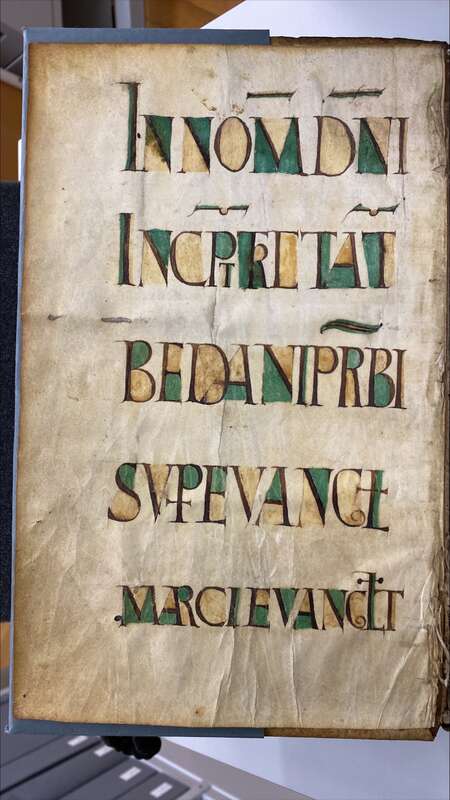 IN NOM DNI
INCPT KRI TAT
BEDANI PRBI
SVP EVANGL
MARCI EVANGLT